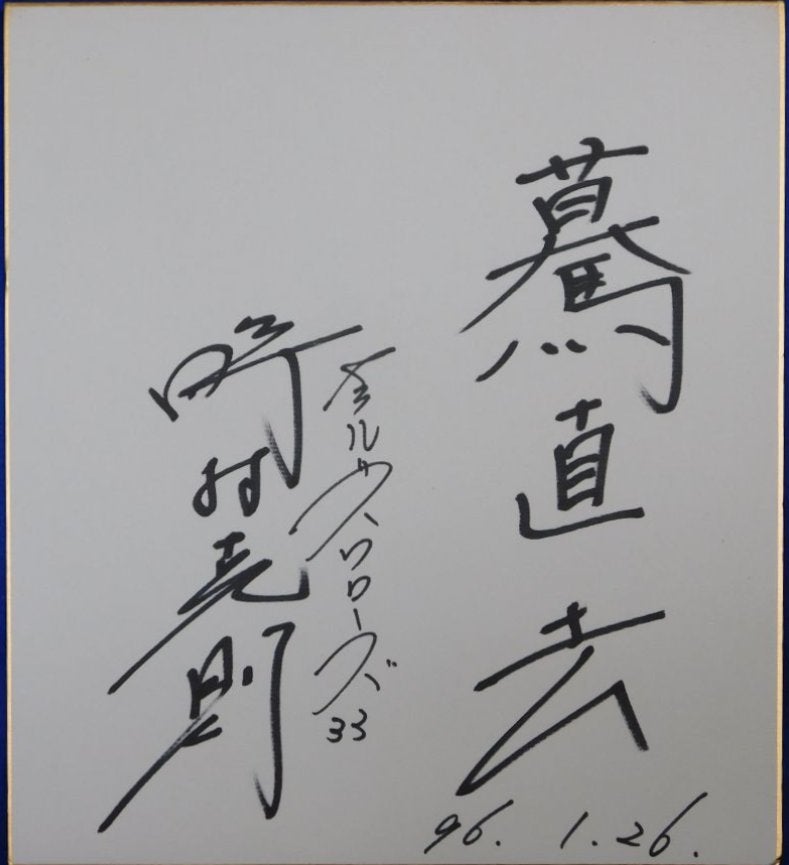 驀直去
96.1.26.
ヤクルトスワローズ33
野村克則